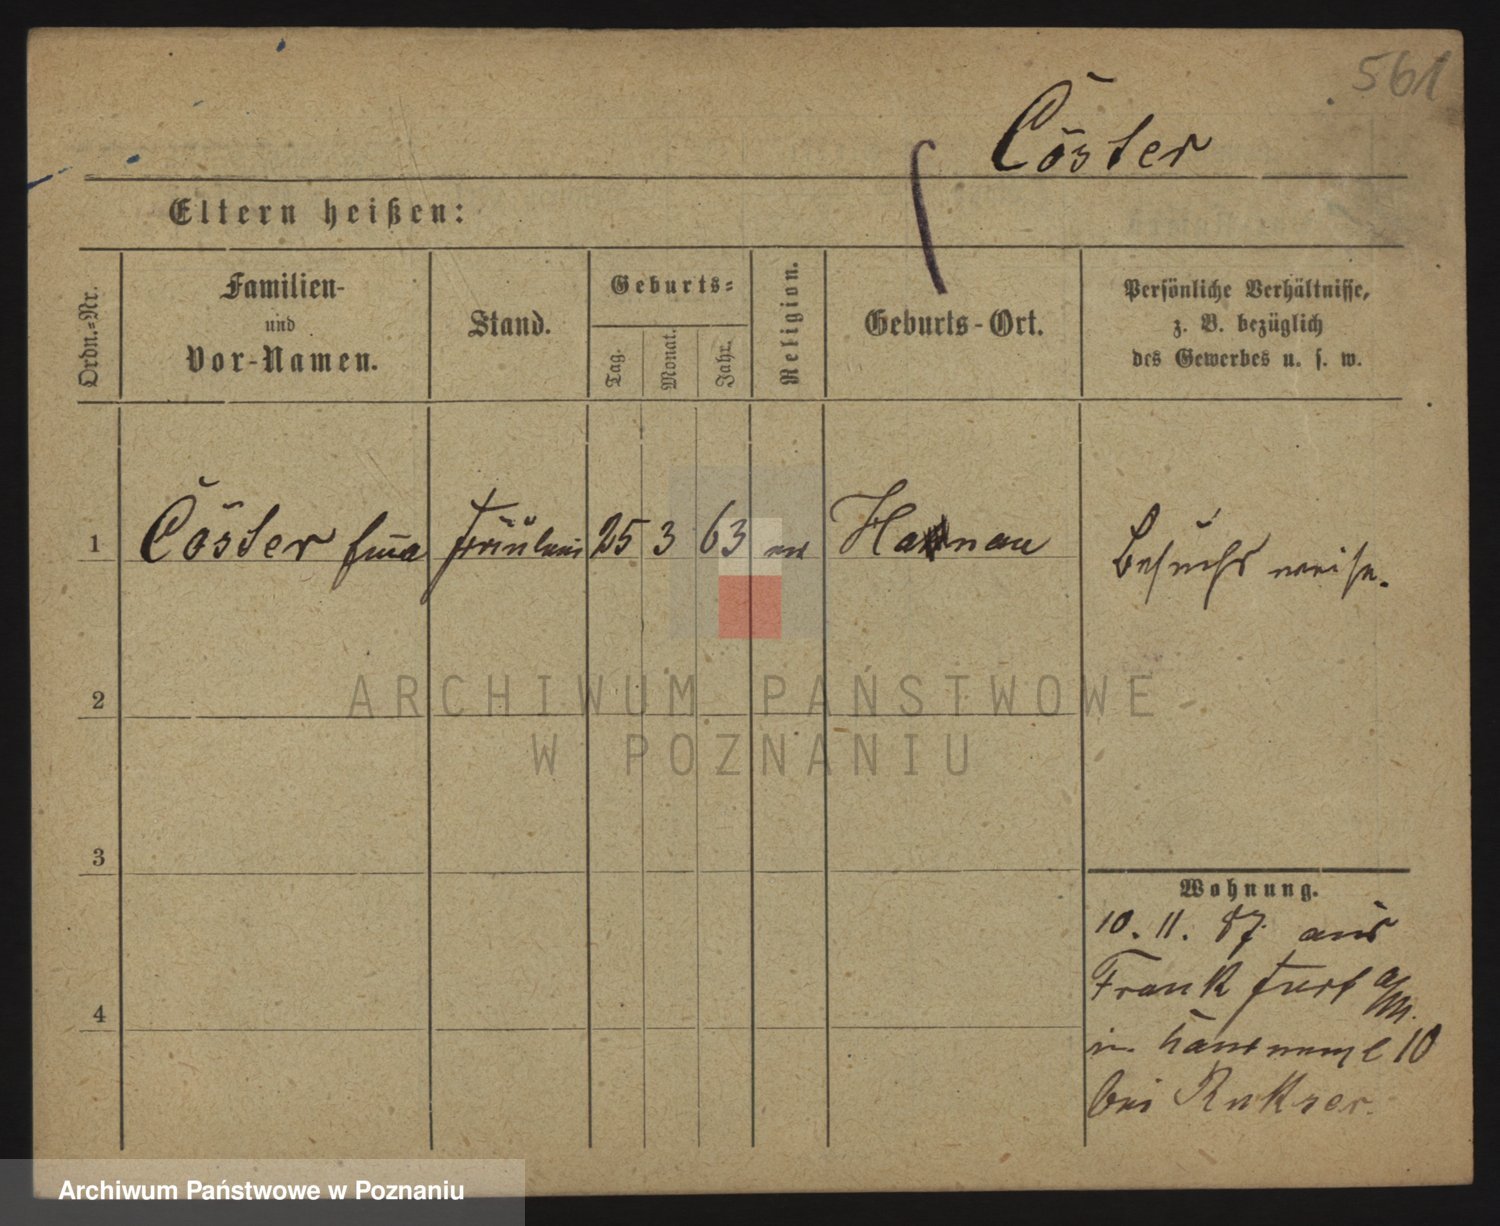 561
Cöster
Eltern heißen:
Ordn.=Nr.
Familien-
und
Vor-Namen.
Stand.
Geburts=
Tag.
Monat.
Jahr.
Religion.
Geburts-Ort.
Persönliche Verhältnisse,
z. B. bezüglich
des Gewerbes u. s. w.
1 Cöster Fräulein 25 3 63 Hanau
Besuchsweise.
2
ARCHIWUM PAŃSTWOWE
W POZNANIU
3
Wohnung.
10. 11. 87. aus
Frankfurt a/M.
4
10
bei Rukser.
Archiwum Państwowe w Poznaniu